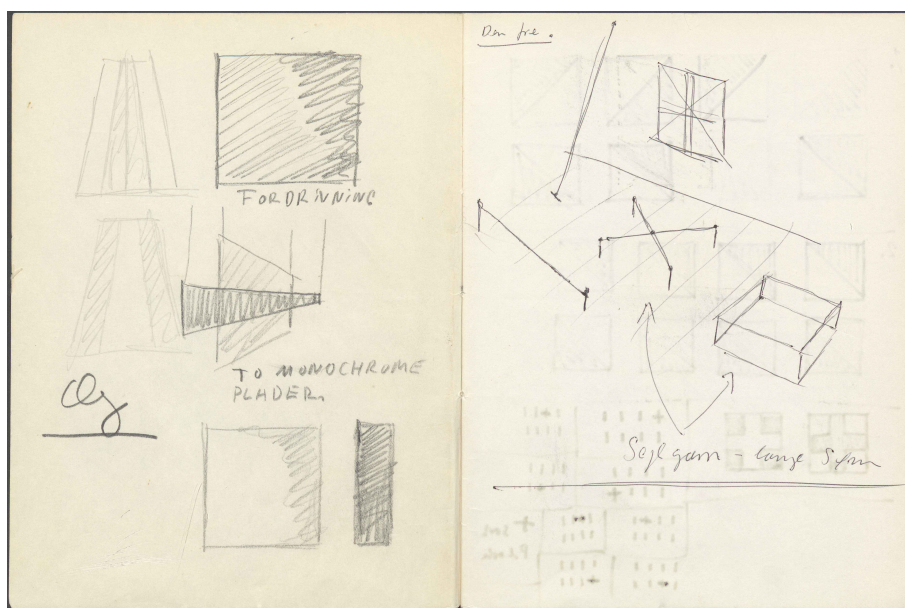 FORDRINNING
TO MONOCHROME
PLADER.
Og
Den fre.
Sejlgarn - lange Søm